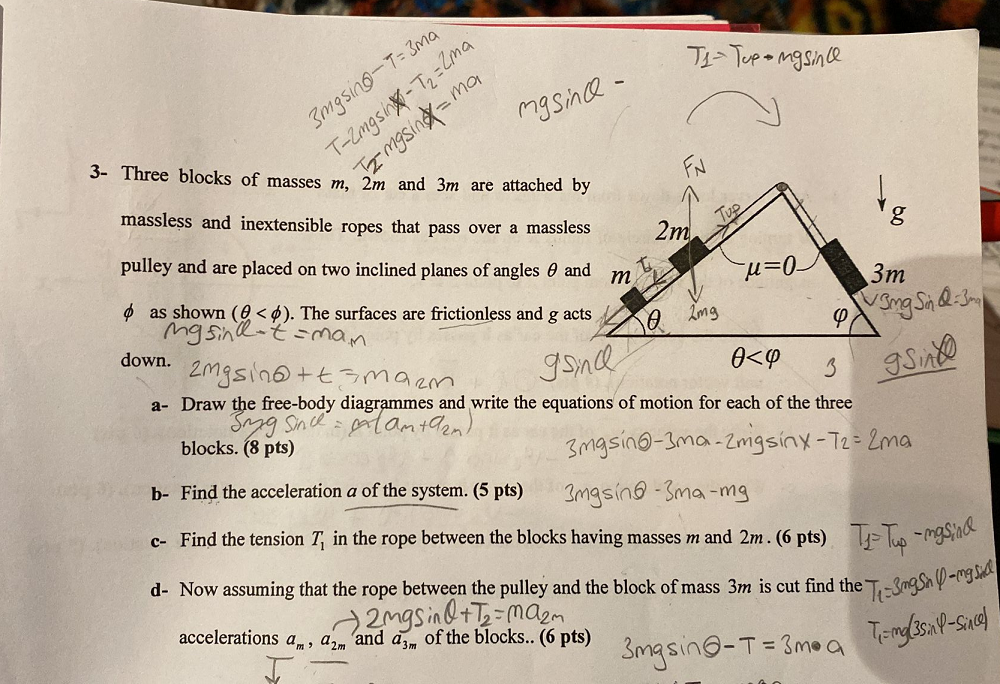 3mgsinθ-T=3ma
T-2mgsinX-T2=2ma
T2-mgsinX=ma
mgsinθ -
T1=Tup-mgsinθ
3- Three blocks of masses m, 2m and 3m are attached by
massless and inextensible ropes that pass over a massless
pulley and are placed on two inclined planes of angles θ and
ϕ as shown (θ < ϕ). The surfaces are frictionless and g acts
mgsinθ-t=mam
down.
2mgsinθ+t=ma2m
FN
Tup
2m
T1
m
μ=0
g
3m
3mgSinθ=3m
θ
2mg
φ
gSinθ
θ<φ
3
gSinθ
a- Draw the free-body diagrammes and write the equations of motion for each of the three
3mgSinθ=m(am+a2m)
blocks. (8 pts)
3mgsinθ-3ma-2mgsinx-T2=2ma
b- Find the acceleration a of the system. (5 pts)
3mgsinθ-3ma-mg
c- Find the tension T1 in the rope between the blocks having masses m and 2m. (6 pts)
T1=Tup-mgsinθ
d- Now assuming that the rope between the pulley and the block of mass 3m is cut find the
T1=3mgSinφ-mgsinθ
→2mgsinθ+T2=ma2m
accelerations am, a2m and a3m of the blocks.. (6 pts)
T1=mg(3sinφ-Sinθ)
3mgsinθ-T=3m•a